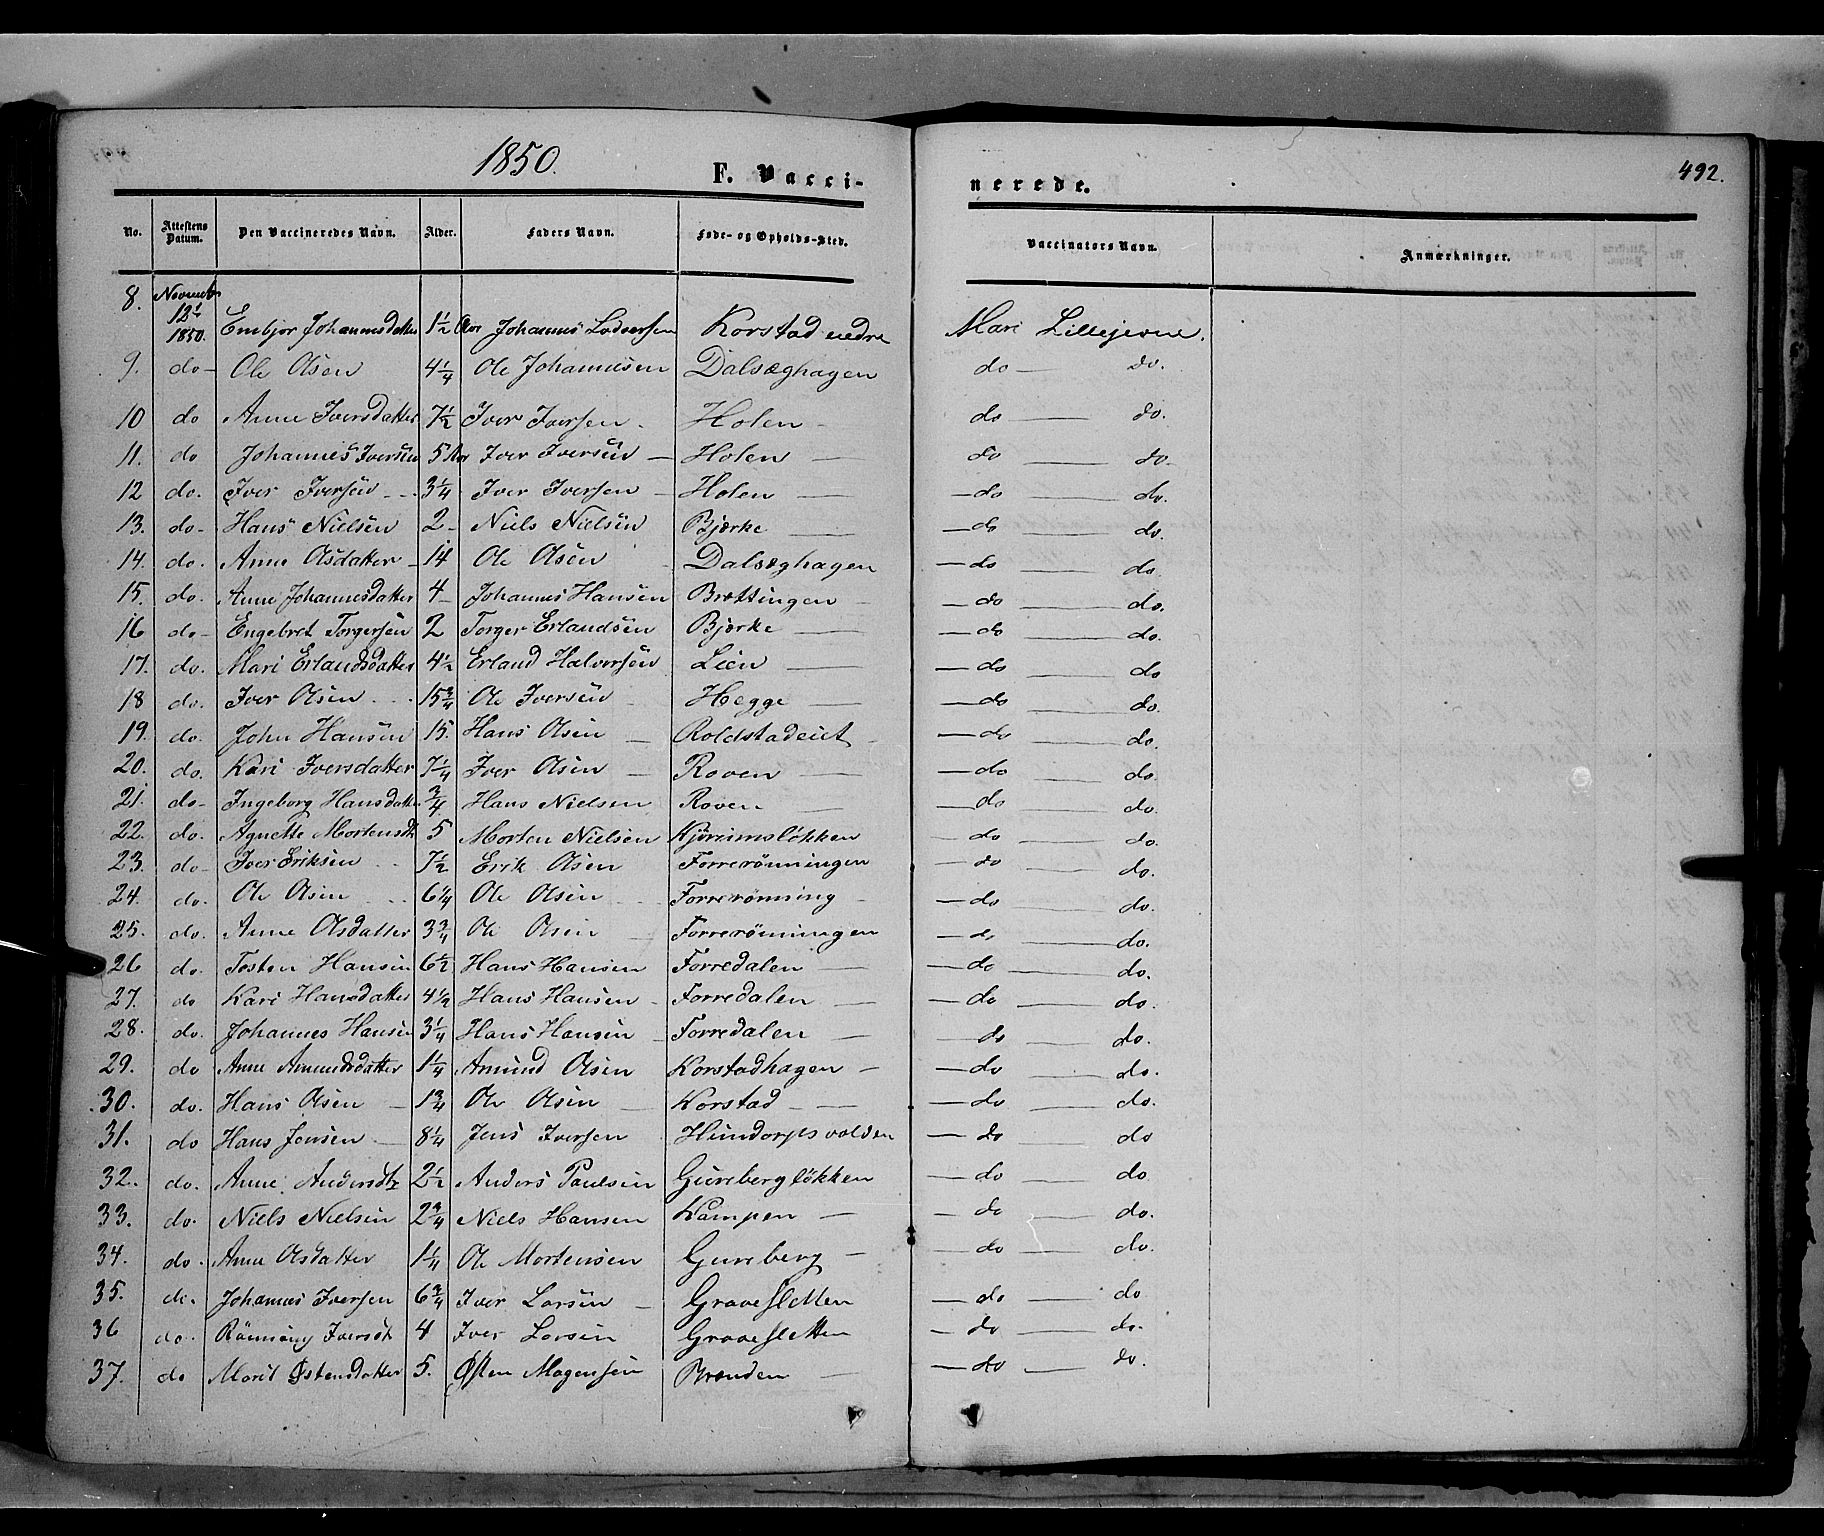 1850.
F. Vacci-
nerede.
492.
No. Attestens Datum. Den Vaccineredes Navn. Alder. Faders Navn. Føde- og Opholds-Sted. Vaccinators Navn. Anmærkninger.
8. Novemb 12te 1850. Embjør Johannesdatter 1 1/2 Aar Johannes Lodversen Korstad nedre Mari Lillejevne.
9. do - Ole Olsen 4 1/4 Ole Johannesen Dalsæghagen do — do.
10 do Anne Iversdatter 7 1/2 Iver Iversen - Holen - do — do.
11. do Johannes Iversen 5 Aar Iver Iversen — Holen — do — do -
12 do. Iver Iversen - - 3 1/4 Iver Iversen — Holen — — do — do.
13. do - Hans Nielsen 2 - Niels Nielsen Bjørke — — do — do.
14. do. Anne Olsdatter - 14 Ole Olsen - Dalsæghagen — do — do.
15. do. Anne Johannesdatter 4 - Johannes Hansen Brettingen - — do — do.
16 do - Engebret Torgersen 2 Torger Erlandsen Bjørke — — do — do.
17. do. Mari Erlandsdatter 4 1/2 Erland Halvorsen Lien — — do — do
18 do. Iver Olsen - - 15 3/4 Ole Iversen - Hegge — — do — do.
19. do. John Hansen 15. Hans Olsen — Roldstadeiet - — do — do.
20. do. Kari Iversdatter 7 1/4 Iver Olsen — Roven — — do — do.
21. do - Ingeborg Hansdatter 3/4 Hans Nielsen Roven — — do — do.
22. do. Agnette Mortensdt 5 Morten Nielsen Kjøremsløkken — do — do.
23. do - Iver Eriksen - - 7 1/2 Erik Olsen Forrerønningen — do — do.
24. do. Ole Olsen - - 6 1/4 Ole Olsen - - Forrerønning - — do — do.
25. do. Anne Olsdatter 3 3/4 Ole Olsen — Forrerønningen — do — do.
26 do. Tosten Hansen 6 1/2 Hans Hansen Forredalen — — do — do.
27. do Kari Hansdatter 4 1/2 Hans Hansen - Forredalen — — do — do.
28. do. Johannes Hansen 3 1/4 Hans Hansen Forredalen — — do — do.
29. do Anne Amundsdatter 1 1/4 Amund Olsen Korstadhagen - — do — do.
30. do. Hans Olsen — 1 3/4 Ole Olsen — Korstad - — — do — do.
31. do Hans Jensen — 8 1/4 Jens Iversen Hundorpsvolden — do — do
32. do. Anne Andersdtr 2 1/2 Anders Paulsen Gurebergløkken — do — do
33. do. Niels Nielsen 2 3/4 Niels Hansen Kampen — — do — do.
34. do. Anne Olsdatter 1 1/4 Ole Mortensen Gureberg - — do — do.
35. do. Johannes Iversen 6 3/4 Iver Larsen — Gravesletten — do — do
36 do. Rønnaug Iversdt 4 Iver Larsen Gravesletten — do — do.
37. do Marit Østensdatter 5. Østen Mogensen Brænden — — do — do.